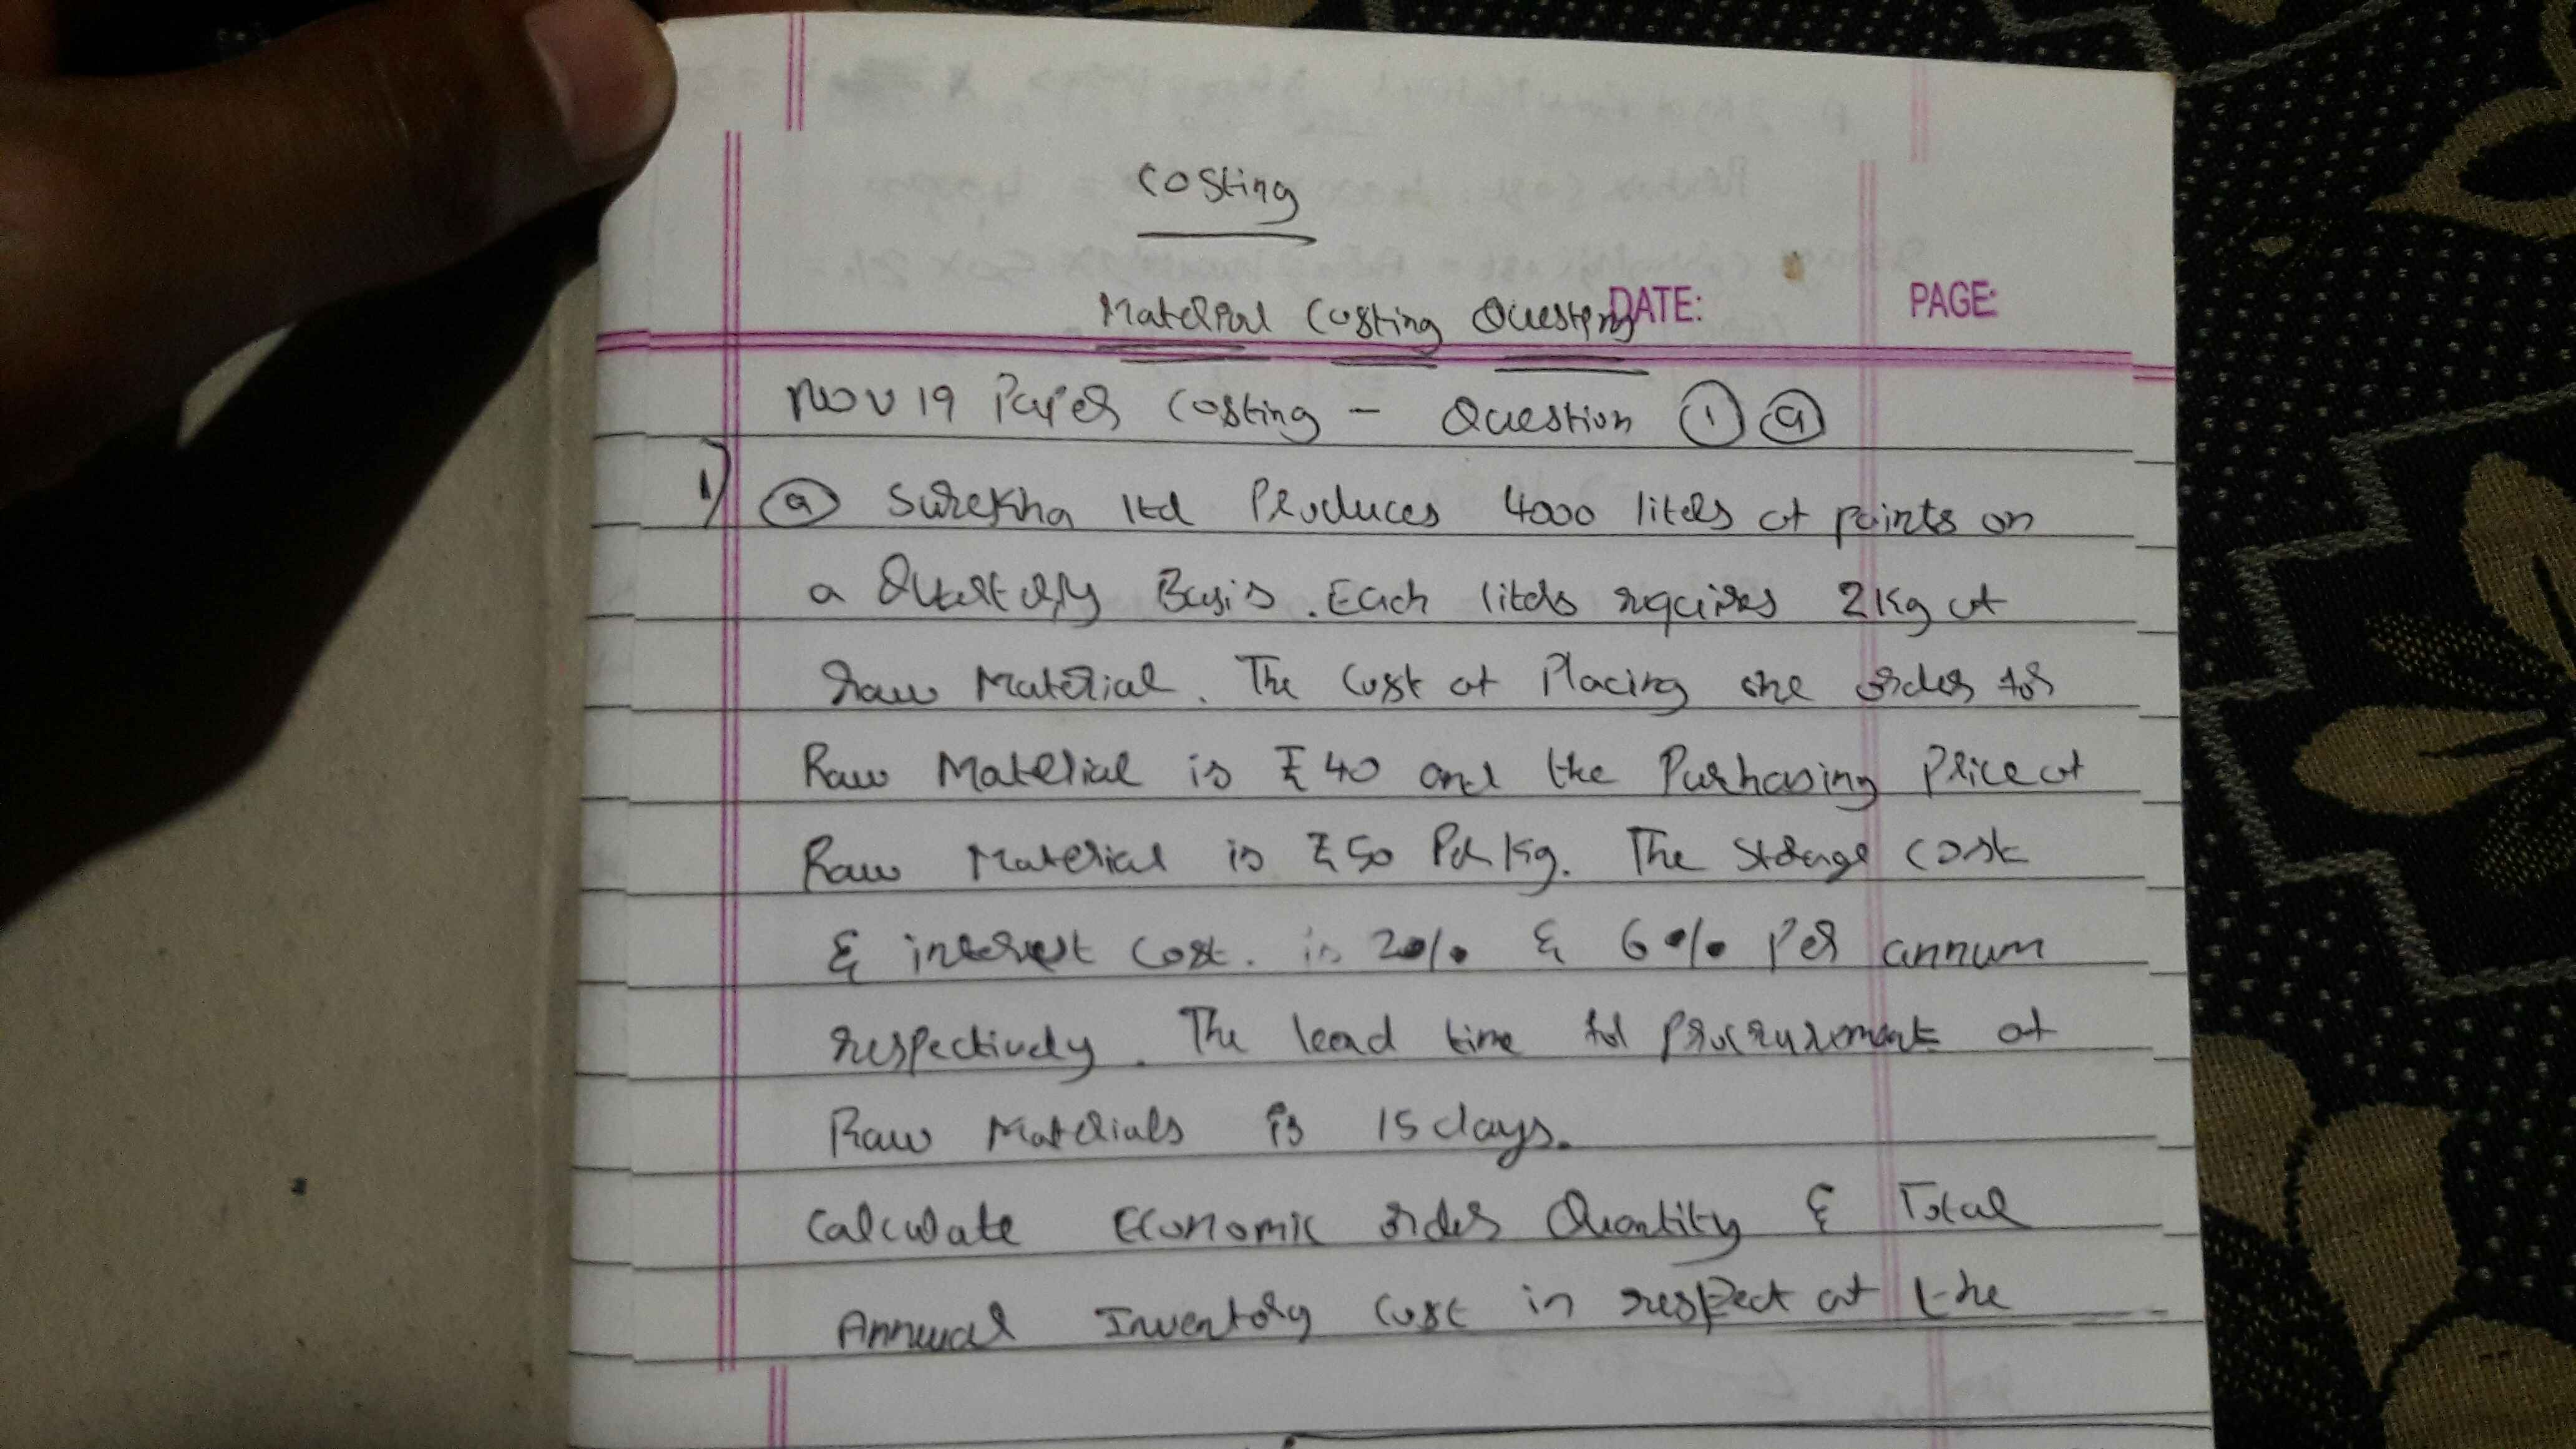 Costing
Material Costing Question
DATE:
PAGE:
NOV 19 Paper Costing - Question ① ⓐ
1) ⓐ Surekha ltd Produces 4000 liters of paints on
a Quarterly Basis. Each liters rquires 2 Kg of
raw Material. The Cost of Placing one order for
Raw Material is ₹ 40 and the Purhasing Price of
Raw Material is ₹ 50 Per Kg. The Storage Cost
& interest Cost. is 2% & 6% Per annum
respectively. The lead time for procrurement of
Raw Materials is 15 days.
Calculate Economic order Quantity & Total
Annual Inventory Cost in respect of the